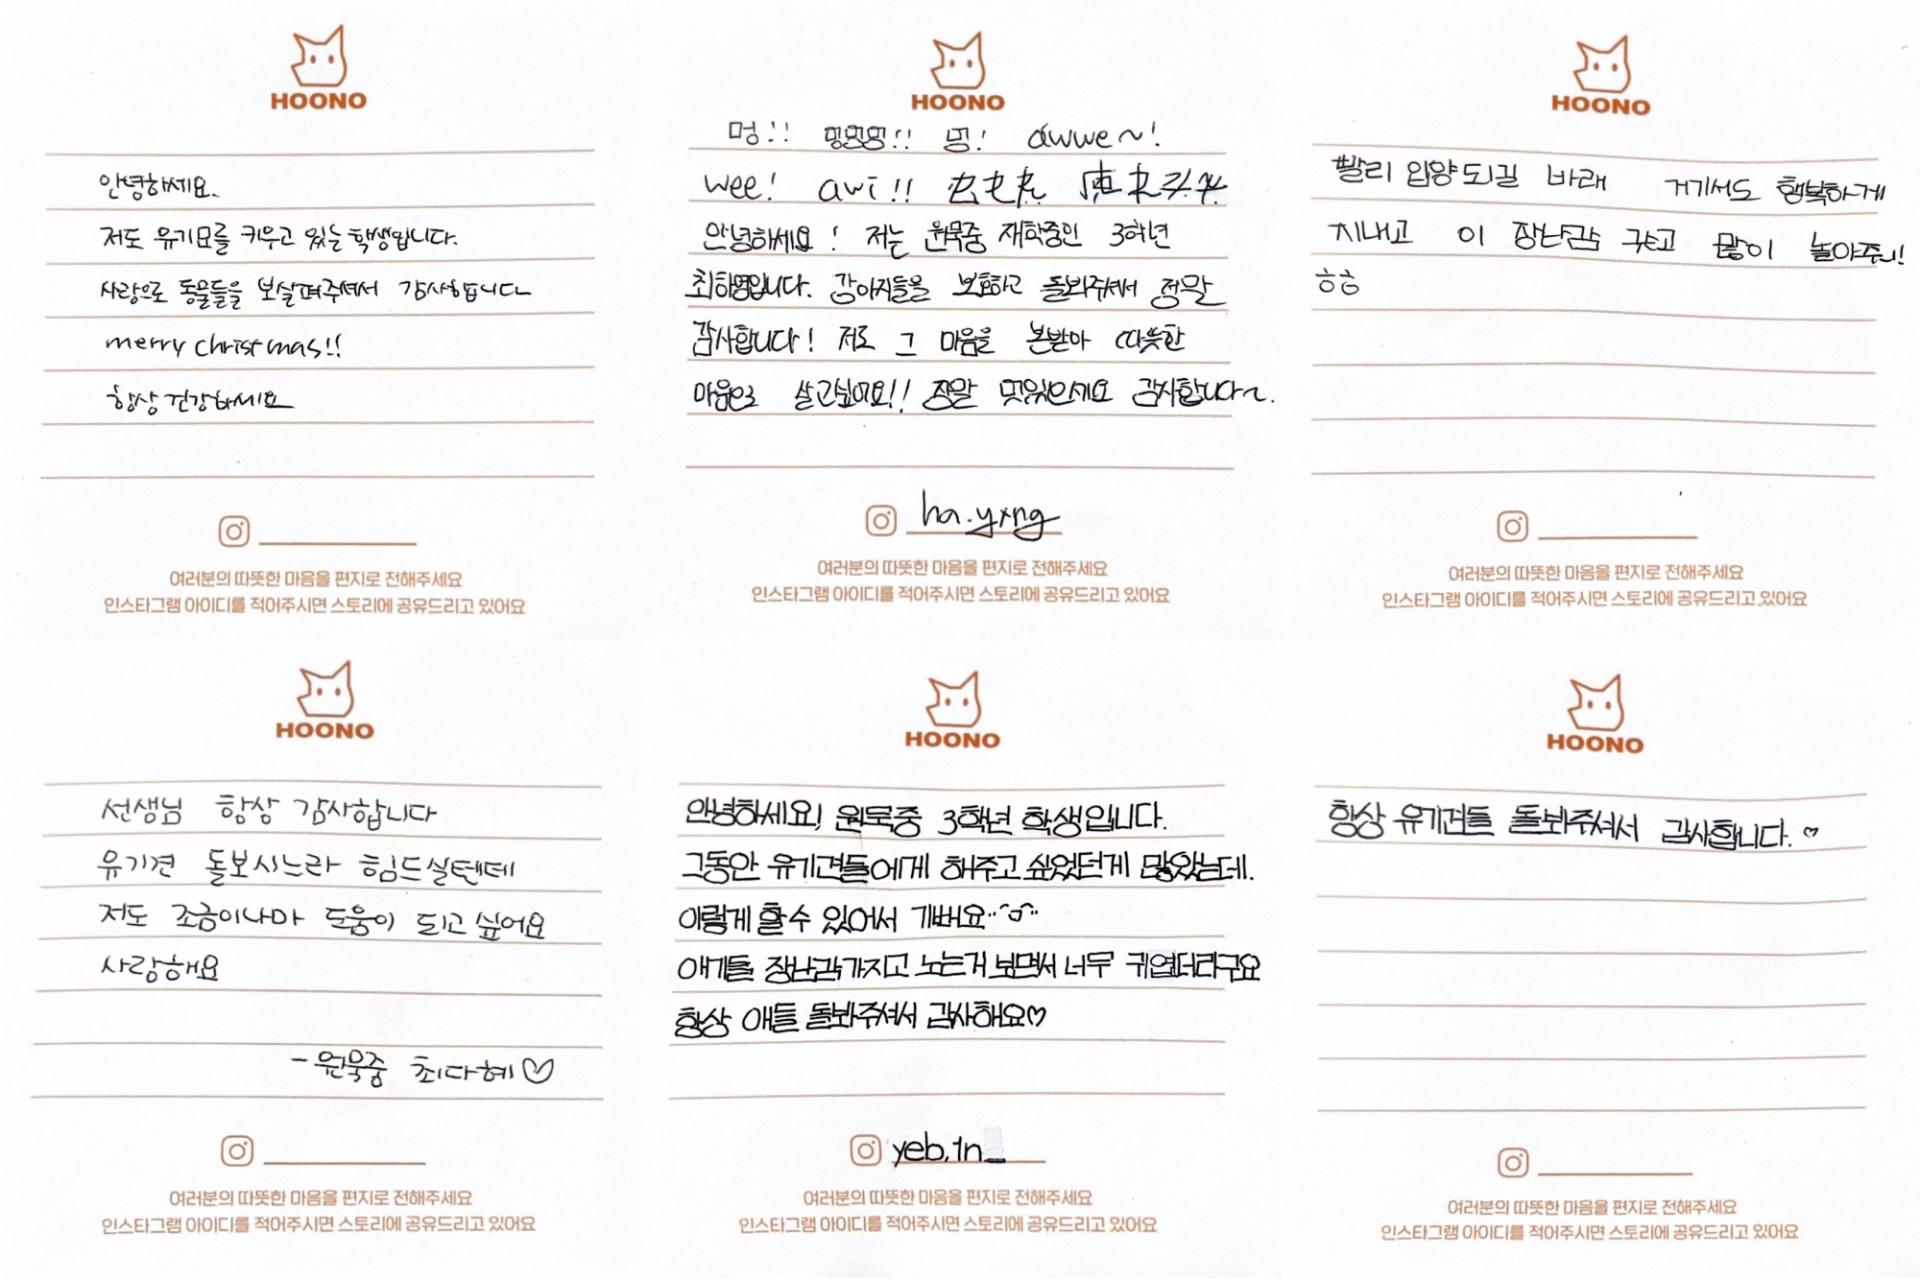 HOONO
안녕하세요.
저도 유기묘를 키우고 있는 학생입니다.
사랑으로 동물들을 보살펴주셔서 감사합니다
merry christmas!!
항상 건강하세요
여러분의 따뜻한 마음을 편지로 전해주세요
인스타그램 아이디를 적어주시면 스토리에 공유드리고 있어요
HOONO
멍!! 멍멍멍!! 멍! awwe~!
wee! awi!!
안녕하세요! 저는 원묵중 재학중인 3학년
최하영입니다. 강아지들을 보호하고 돌봐주셔서 정말
감사합니다! 저도 그 마음을 본받아 따뜻한
마음으로 살고싶어요!! 정말 멋있으세요 감사합니다~.
ha.yxng
여러분의 따뜻한 마음을 편지로 전해주세요
인스타그램 아이디를 적어주시면 스토리에 공유드리고 있어요
HOONO
빨리 입양되길 바래 거기서도 행복하게
지내고 이 장난감 갖고 많이 놀아주니!
ㅎㅎ
여러분의 따뜻한 마음을 편지로 전해주세요
인스타그램 아이디를 적어주시면 스토리에 공유드리고 있어요
HOONO
선생님 항상 감사합니다
유기견 돌보시느라 힘드실텐데
저도 조금이나마 도움이 되고 싶어요
사랑해요
-원묵중 최다혜♡
여러분의 따뜻한 마음을 편지로 전해주세요
인스타그램 아이디를 적어주시면 스토리에 공유드리고 있어요
HOONO
안녕하세요! 원묵중 3학년 학생입니다.
그동안 유기견들에게 해주고 싶었던게 많았는데.
이렇게 할수 있어서 기뻐요
애기들 장난감가지고 노는거 보면서 너무 귀엽더라구요
항상 애들 돌봐주셔서 감사해요♡
yeb.1n_
여러분의 따뜻한 마음을 편지로 전해주세요
인스타그램 아이디를 적어주시면 스토리에 공유드리고 있어요
HOONO
항상 유기견들 돌봐주셔서 감사합니다.♡
여러분의 따뜻한 마음을 편지로 전해주세요
인스타그램 아이디를 적어주시면 스토리에 공유드리고 있어요